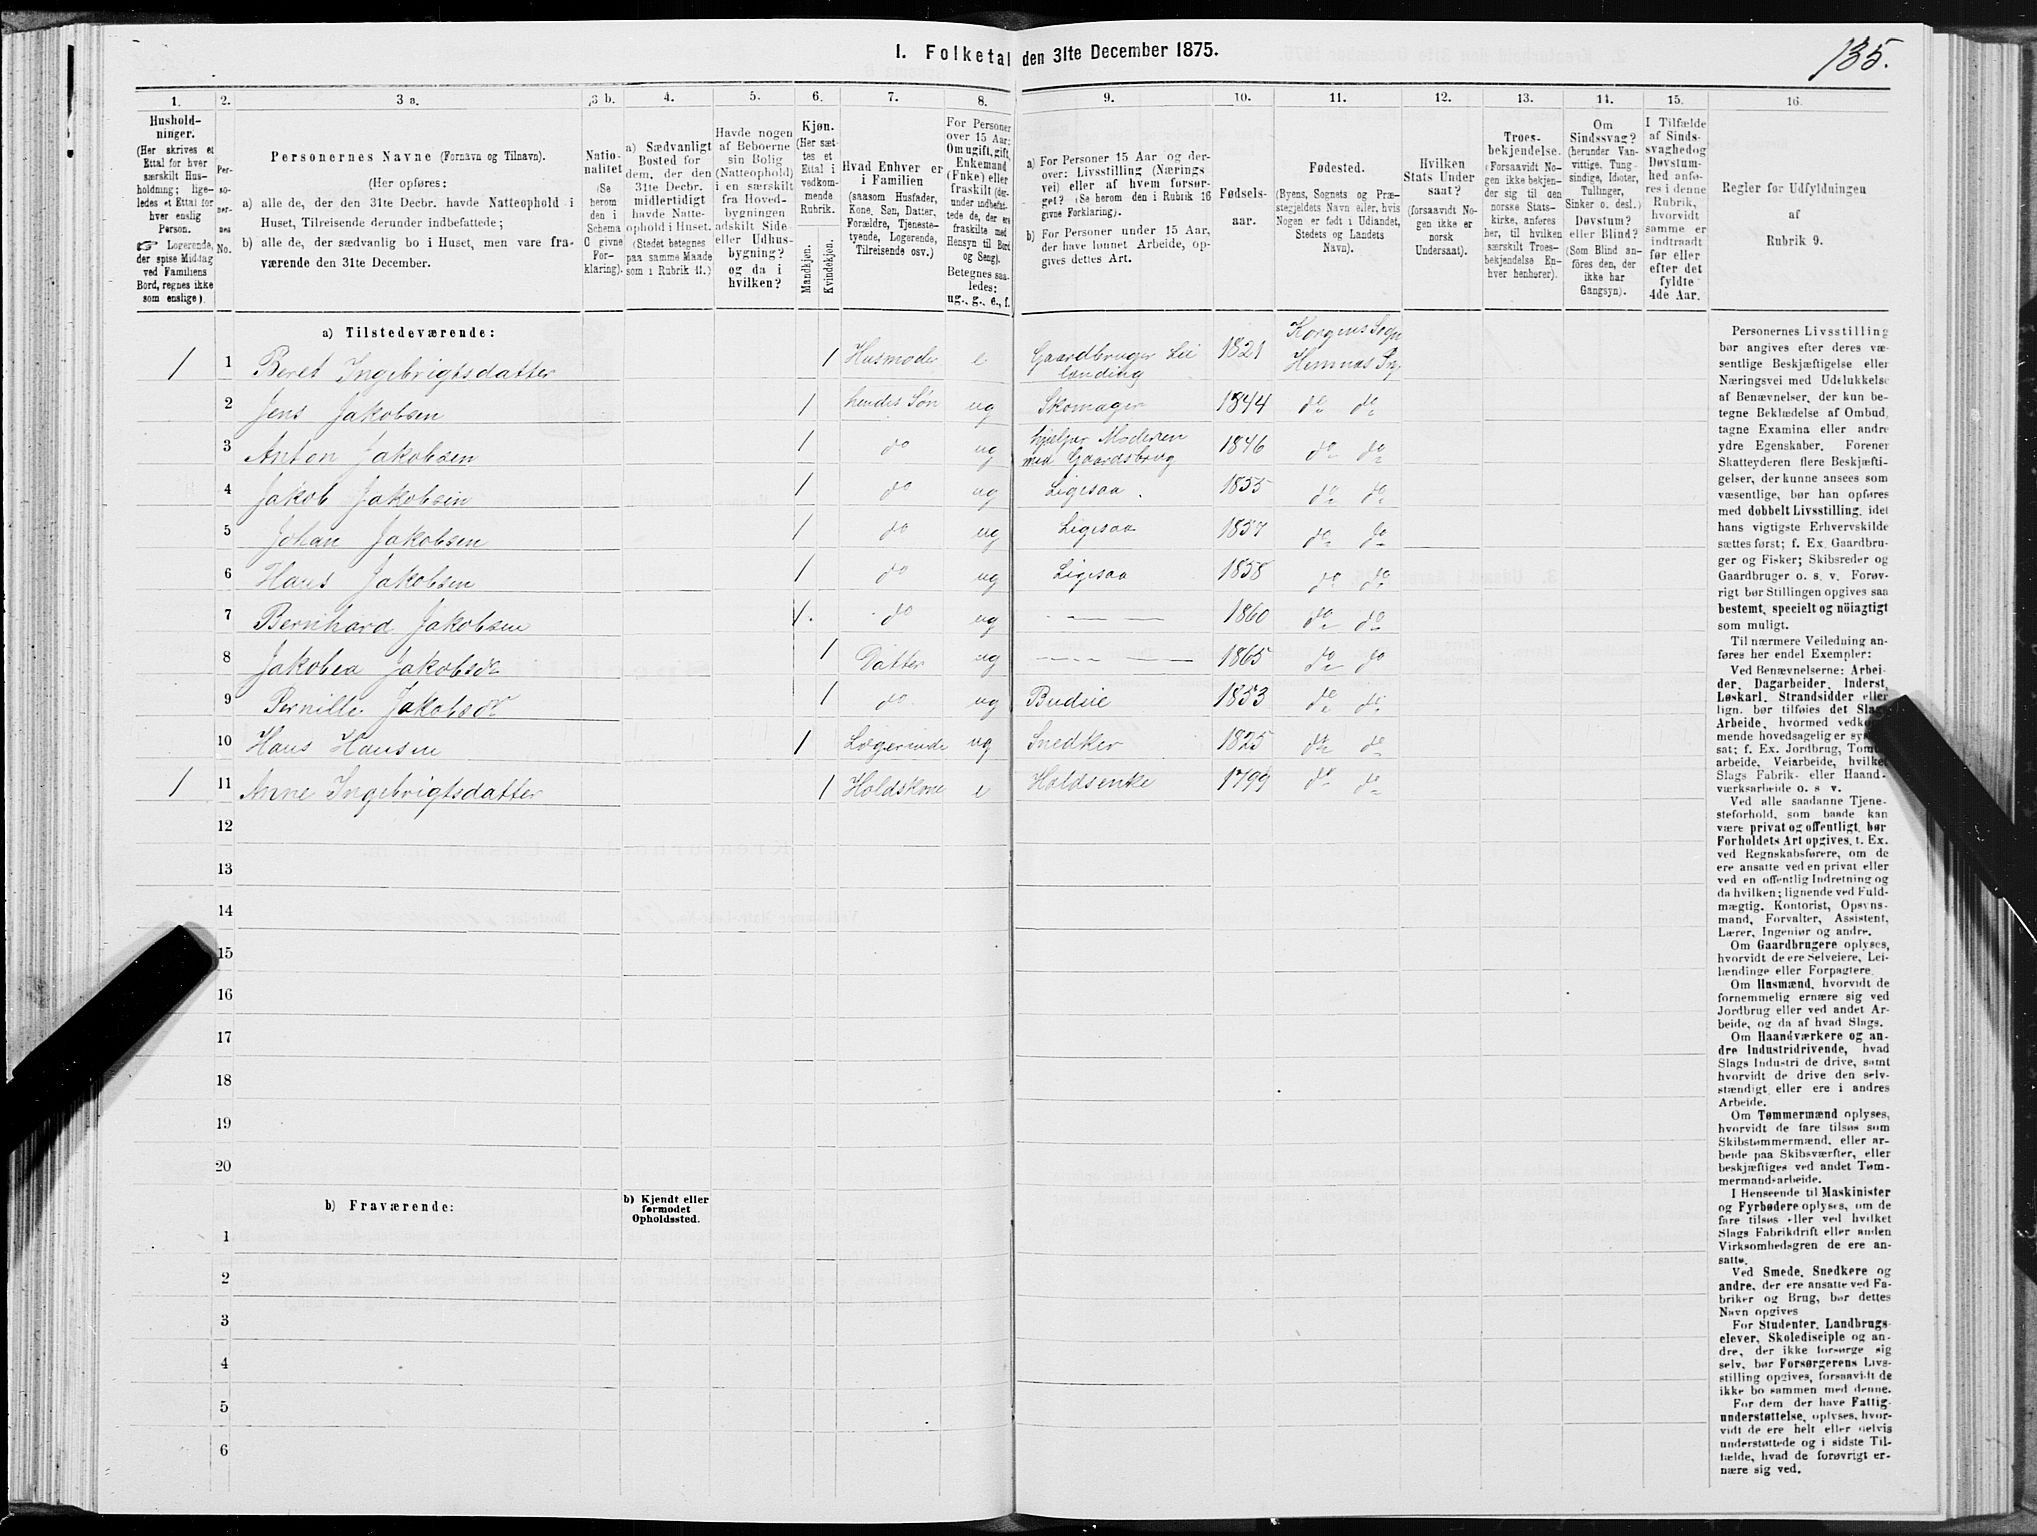 I. Folketal den 31te December 1875.
135.
1.
2.
3 a.
3 b.
4.
5.
6.
7.
8.
9.
10.
11.
12.
13.
14.
15.
16.
Hushold-
ninger.
(Her skrives et
Ettal for hver
særskilt Hus-
holdning; lige-
ledes et Ettal for
hver enslig
Person.
☞ Logerende,
der spise Middag
ved Familiens
Bord, regnes ikke
som enslige).
Per-
so-
ner-
nes
No.
Personernes Navne (Fornavn og Tilnavn).
(Her opføres:
a) alle de, der den 31te Decbr. havde Natteophold i
Huset, Tilreisende derunder indbefattede;
b) alle de, der sædvanlig bo i Huset, men vare fra-
værende den 31te December.
Natio-
nalitet
(Se
herom
den i
Schema
C givne
For-
klaring).
a) Sædvanligt
Bosted for
dem, der den
31te Decbr.
midlertidigt
havde Natte-
ophold i Huset.
(Stedet betegnes
paa samme Maade
som i Rubrik 11.)
Havde nogen
af Beboerne
sin Bolig
(Natteophold)
i en særskilt
fra Hoved-
bygningen
adskilt Side-
eller Udhus-
bygning?
og da i
hvilken?
Kjøn.
(Her sæt-
tes et
Ettal i
vedkom-
mende
Rubrik.
Mandkjøn.
Kvindekjøn.
Hvad Enhver er
i Familien
(saasom Husfader,
Kone, Søn, Datter,
Forældre, Tjeneste-
tyende, Logerende,
Tilreisende osv.)
For Personer
over 15 Aar:
Om ugift, gift,
Enkemand
(Enke) eller
fraskilt (der-
under indbefat-
tede de, der ere
fraskilte med
Hensyn til Bord
og Seng).
Betegnes saa-
ledes:
ug., g., e., f.
a) For Personer 15 Aar og der-
over: Livsstilling (Nærings
vei) eller af hvem forsør-
get? (Se herom den i Rubrik 16
givne Forklaring).
b) For Personer under 15 Aar,
der have lønnet Arbeide, op-
gives dettes Art.
Fødsels-
aar.
Fødested.
(Byens, Sognets og Præ-
stegjeldets Navn eller, hvis
Nogen er født i Udlandet,
Stedets og Landets
Navn).
Hvilken
Stats Under
saat?
(forsaavidt No-
gen ikke er
norsk
Undersaat).
Troes-
bekjendelse.
(Forsaavidt No-
gen ikke bekjen-
der sig til den
norske Stats-
kirke, anføres
her, til hvilken
særskilt Troes-
bekjendelse En-
hver henhører).
Om
Sindssvag?
(herunder Van-
vittige, Tung-
sindige, Idioter,
Tullinger,
Sinker o. desl.)
Døvstum?
eller Blind?
(Som Blind an-
føres den, der
ikke har
Gangsyn).
I Tilfælde
af Sinds-
svaghed og
Døvstum-
hed anfø-
res i denne
Rubrik,
hvorvidt
samme er
indtraadt
før eller
efter det
fyldte
4de Aar.
Regler før Udfyldningen
af
Rubrik 9.
a) Tilstedeværende:
1 1 Beret Ingebrigtsdatter 1 Husmoder e Gaardbruger Lei lænding 1821 Korgens Sogn Hemnæs Pg
2 Jens Jakobsen 1 hendes Søn ug Skomager 1844 do do
3 Anton Jakobsen 1 do ug hjelper Moderen med Gaardsbrug 1846 do do
4 Jakob Jakobsen 1 do ug Ligesaa. 1855 do do
5 Johan Jakobsen 1 do ug Ligesaa 1857 do do
6 Hans Jakobsen 1 do ug Ligesaa 1858 do do
7 Bernhard Jakobsen 1. do ug — — — 1860 do do
8 Jakobea Jakobsdr 1 Datter ug — — — 1865 do do
9 Pernille Jakobsdr 1 do ug Budeie 1853 do do
10 Hans Hansen 1 Logerende ug Snedker 1825 do do
1 11 Anne Ingebrigtsdatter 1 Holdskone e Holdsenke 1799 do do
12
13
14
15
16
17
18
19
20
b) Fraværende:
b) Kjendt eller
formodet
Opholdssted.
1
2
3
4
5
6
Personernes Livsstilling
bør angives efter deres væ-
sentlige Beskjæftigelse eller
Næringsvei med Udelukkelse
af Benævnelser, der kun be-
tegne Beklædelse af Ombud,
tagne Examina eller andre
ydre Egenskaber. Forener
Skatteyderen flere Beskjæfti-
gelser, der kunne ansees som
væsentlige, bør han opføres
med dobbelt Livsstilling, idet
hans vigtigste Erhvervskilde
sættes først; f. Ex. Gaardbru-
ger og Fisker; Skibsreder og
Gaardbruger o. s. v. Forøv-
rigt bør Stillingen opgives saa
bestemt, specielt og nöiagtigt
som muligt.
Til nærmere Veiledning an-
føres her endel Exempler:
Ved Benævnelserne: Arbei-
der, Dagarbeider, Inderst,
Løskarl, Strandsidder eller
lign. bør tilføies det Slags
Arbeide, hvormed vedkom-
mende hovedsagelig er syssel-
sat; f. Ex. Jordbrug, Tomte-
arbeide, Veiarbeide, hvilket
Slags Fabrik- eller Haand-
værksarbeide o. s v.
Ved alle saadanne Tjene-
steforhold, som baade kan
være privat og offentligt, bør
Forholdets Art opgives, t. Ex.
ved Regnskabsførere, om de
ere ansatte ved en privat eller
ved en offentlig Indretning og
da hvilken; lignende ved Fuld-
mægtig, Kontorist, Opsyns-
mand, Forvalter, Assistent,
Lærer, Ingeniør og andre.
Om Gaardbrugere oplyses,
hvorvidt de ere Selveiere, Lei-
lændinge eller Forpagtere.
Om Husmænd, hvorvidt de
fornemmelig ernære sig ved
Jordbrug eller ved andet Ar-
beide, og da af hvad Slags.
Om Haandværkere og an-
dre Industridrivende, hvad
Slags Industri de drive, samt
hvorvidt de drive den selv-
stændigt eller ere i andres
Arbeide.
Om Tømmermænd oplyses,
hvorvidt de fare tilsøs som
Skibstømmermænd, eller ar-
beide paa Skibsværfter, eller
beskjæftiges ved andet Tøm-
mermandsarbeide.
I Henseende til Maskinister
og Fyrbødere oplyses, om de
fare tilsøs eller ved hvilket
Slags Fabrikdrift eller anden
Virksomhedsgren de ere an-
satte.
Ved Smede, Snedkere og
andre, der ere ansatte ved Fa-
briker og Brug, bør dettes
Navn opgives
For Studenter, Landbrugs-
elever, Skoledisciple og an-
dre, der ikke forsørge sig
selv, bør Forsørgerens Livs-
stilling opgives, forsaavidt de
ikke bo sammen med denne.
For dem der have Fattig-
understøttelse, oplyses, hvor-
vidt de ere helt eller delvis
understøttede og i sidste Til-
fælde, hvad de forøvrigt er-
nære sig ved.